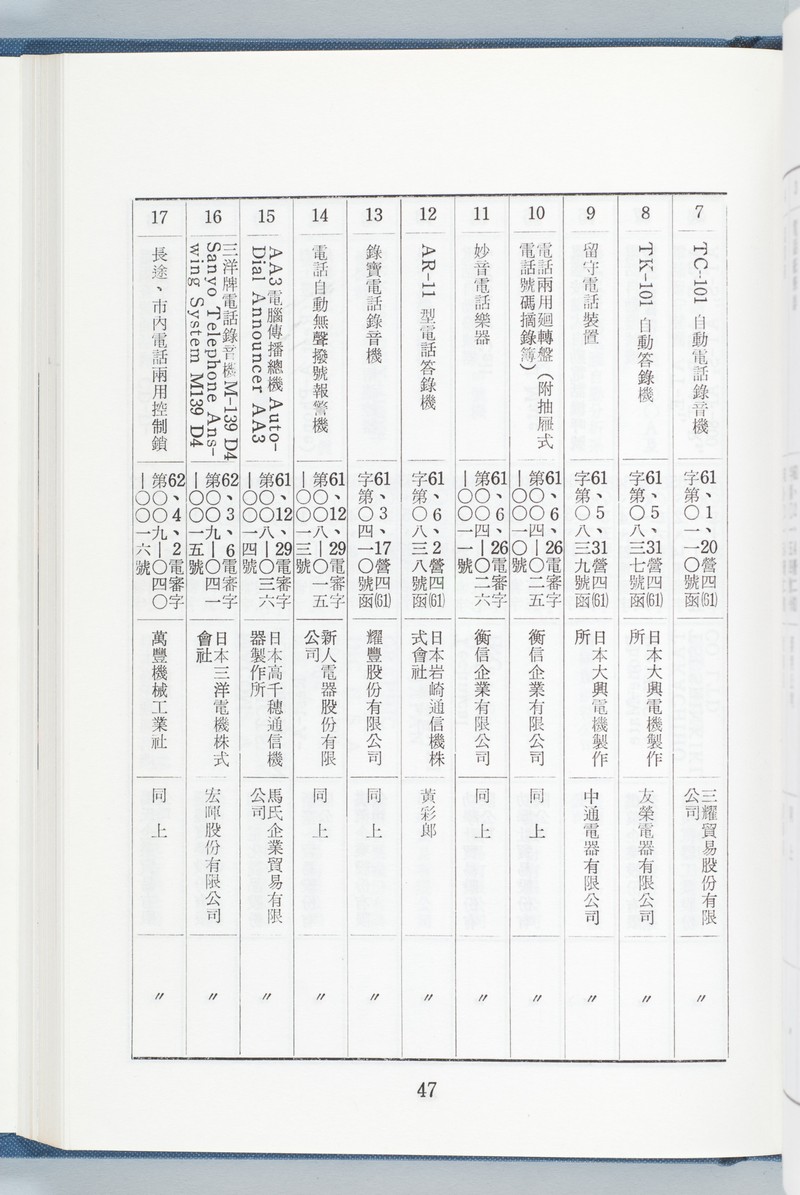 7
TC-101 自動電話錄音機
61、1、20營四(61)
字第〇一一〇號函
三耀貿易股份有限
公司
〃
8
TK-101 自動答錄機
61、5、31營四(61)
字第〇八三七號函
日本大興電機製作
所
友榮電器有限公司
〃
9
留守電話裝置
61、5、31營四(61)
字第〇八三九號函
日本大興電機製作
所
中通電器有限公司
〃
10
電話兩用廻轉盤(附抽屜式
電話號碼摘錄簿)
61、6、26電審字
第〇〇四—〇二五
—〇〇一〇號
衡信企業有限公司
同上
〃
11
妙音電話樂器
61、6、26電審字
第〇〇四—〇二六
—〇〇一一號
衡信企業有限公司
同上
〃
12
AR-11 型電話答錄機
61、6、2營四(61)
字第〇八三八號函
日本岩崎通信機株
式會社
黃彩郎
〃
13
錄寶電話錄音機
61、3、17營四(61)
字第〇四一〇號函
耀豐股份有限公司
同上
〃
14
電話自動無聲撥號報警機
61、12、29電審字
第〇〇八—〇一五
—〇〇一三號
新人電器股份有限
公司
同上
〃
15
AA3 電腦傳播總機 Auto-
Dial Announcer AA3
61、12、29電審字
第〇〇八—〇三六
—〇〇一四號
日本高千穗通信機
器製作所
馬氏企業貿易有限
公司
〃
16
三洋牌電話錄音機M-139 D4
Sanyo Telephone Ans-
wing System M139 D4
62、3、6電審字
第〇〇九—〇四一
—〇〇一五號
日本三洋電機株式
會社
宏暉股份有限公司
〃
17
長途、市內電話兩用控制鎖
62、4、2電審字
第〇〇九—〇四〇
—〇〇一六號
萬豐機械工業社
同上
〃
47